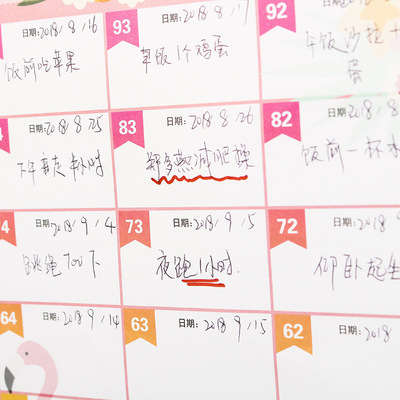 日期:2018/8/16
饭前吃苹果
93 日期:2018/8/17
早饭1个鸡蛋
92 日期:2018
午饭沙拉+
蛋
4 日期:2018/8/25
下午走半小时
83 日期:2018/8/26
郑多燕减肥操
82 日期:2018/8
饭前一杯水
74 日期:2018/9/4
跳绳700下
73 日期:2018/9/15
夜跑1小时.
72 日期:2018/9
仰卧起坐
64 日期:2018/9/14
63 日期:2018/9/15
62 日期:2018